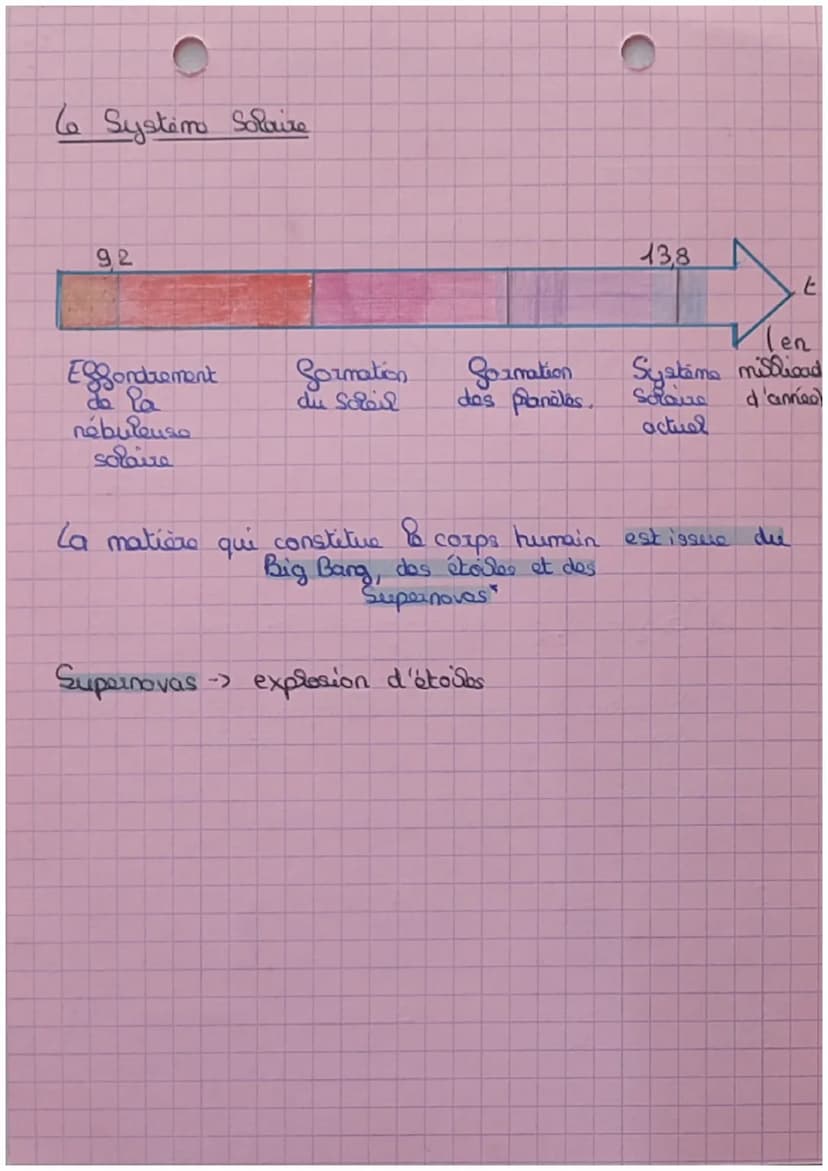 Le Système Solaire
9,2
13,8
t
(en
milliard
d'année)
Effondrement
de la
nébuleuse
solaire
formation
du soleil
formation
des planètes.
Système
solaire
actuel
La matière qui constitue le corps humain est issue du
Big Bang, des étoiles et des
Supernovas*
Supernovas -> explosion d'étoiles